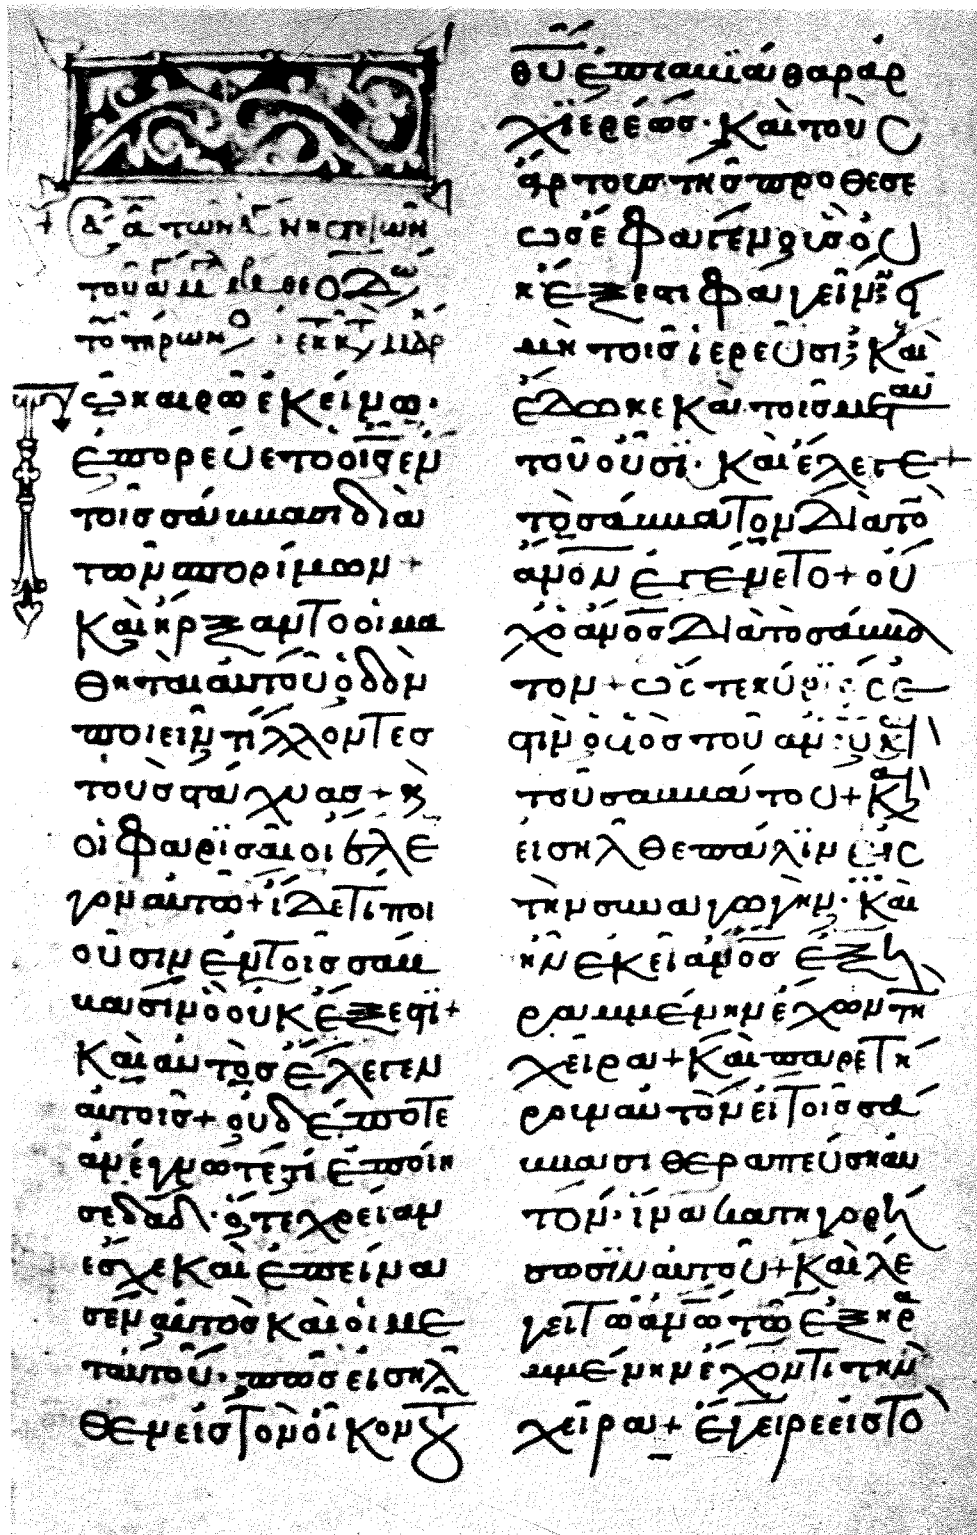 τῶν νηστειῶν
τοῦ ἁγ θεοδώ
τήρων · ἐκ τ κτ μάρ
Τῶ καιρῶ ἐκείνω·
ἐπορεύετο ὁ ισ ἐν
τοῖσ σάββασι διὰ
τῶν σπορίμων +
Καὶ ἤρξαντο οἱ μα
θηταὶ αὐτοῦ ὁδὸν
ποιεῖν τίλλοντεσ
τοὺσ στάχυασ + κ
οἱ Φαρϊσαῖοι ἔλε
γον αὐτῶ + ἴδε τί ποι
οῦσιν ἐν τοῖσ σάβ
βασιν ὃ οὐκ ἔξεστι +
Καὶ αὐτὸσ ἔλεγεν
αὐτοῖσ + οὐδέποτε
ἀνέγνωτε τί ἐποίη
σε δαδ · ὅτε χρείαν
ἔσχε Καὶ ἐπείνα
σεν αὐτὸσ Καὶ οἱ με
τ αὐτοῦ · πῶσ εἰσῆλ
θεν εἰσ τὸν οἶκον τοῦ
θυ ἐπὶ ἀβιάθαρ ἀρ
χϊερέωσ · Καὶ τοὺσ
ἄρτουσ τῆσ προθέσε
ωσ ἔφαγεν οὓσ ου
κ ἔξεστι φαγεῖν εἰ
μὴ τοῖσ ἱερεῦσι; Καὶ
ἔδωκε Καὶ τοῖσ μετ αυ
τοῦ οὖσϊ · Καὶ ἔλεγε +
τὸ σάββατον διὰ τὸν
ἄνον ἐγένετο + οὐ
χ ὁ ἄνοσ διὰ τὸ σάββα
τον + ὥστε κύριοσ ἐ
στιν ὁ υἱὸσ τοῦ ανου κ
τοῦ σαββάτου + Καὶ
εἰσῆλθε πάλϊν εἰσ
τὴν συναγωγήν · Καὶ
ἦν ἐκεῖ ἄνοσ ἐξη
ραμμένην ἔχων τὴ
χεῖρα + Καὶ παρετή
ρουν αὐτὸν εἰ τοῖσ σά
ββασι θεραπεύσει αὐ
τον · ἵνα κατηγορή
σωσϊν αὐτοῦ + Καὶ λέ
γει τῶ ανω τῶ ἐξηρα
μμένην ἔχοντι τὴν
χεῖρα + ἔγειρε εἰσ τὸ